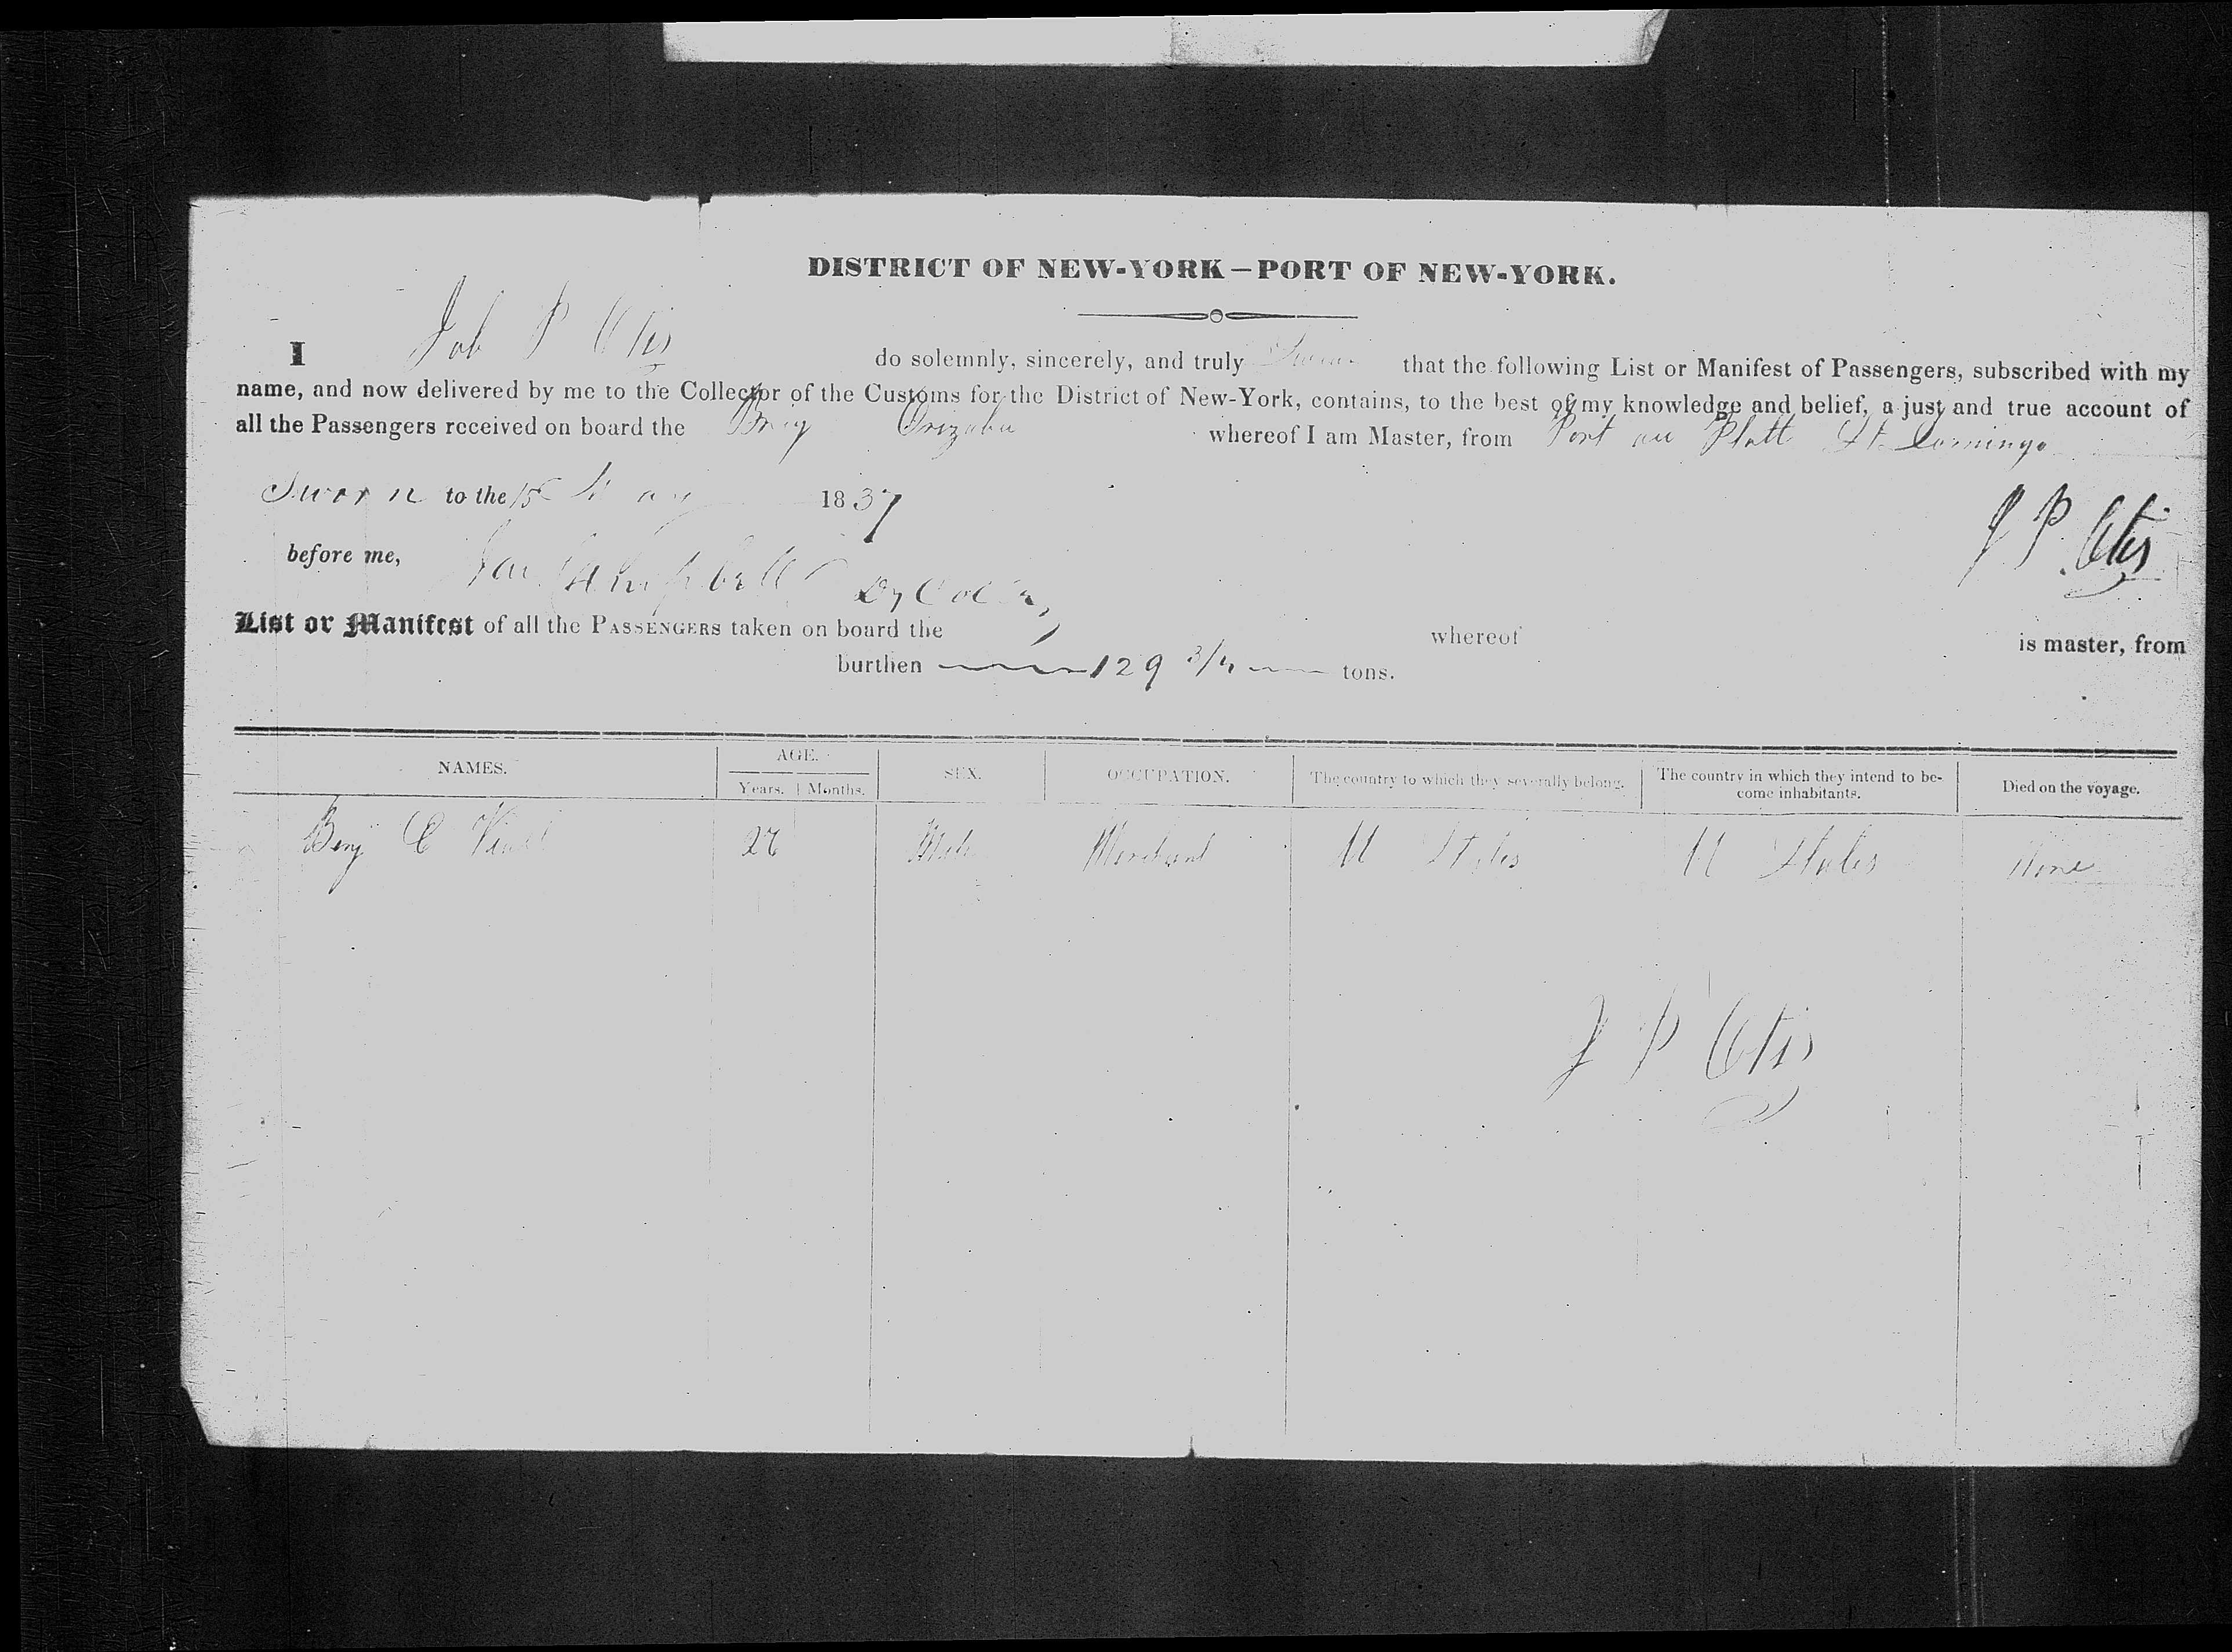 DISTRICT OF NEW-YORK—PORT OF NEW-YORK.
I Job P Otis do solemnly, sincerely, and truly Swear that the following List or Manifest of Passengers, subscribed with my
name, and now delivered by me to the Collector of the Customs for the District of New-York, contains, to the best of my knowledge and belief, a just and true account of
all the Passengers received on board the Brig Orizaba whereof I am Master, from Port au Platt St Domingo
Sworn to the 15 May 1837
J P Otis
before me, Campbell Dy Col
List or Manifest of all the PASSENGERS taken on board the whereof is master, from
burthen 129 3/4 tons.
NAMES. AGE. SEX. OCCUPATION. The country to which they severally belong. The country in which they intend to be-
come inhabitants. Died on the voyage.
Years. Months.
Benj C Male Merchant U States U States None
J P Otis